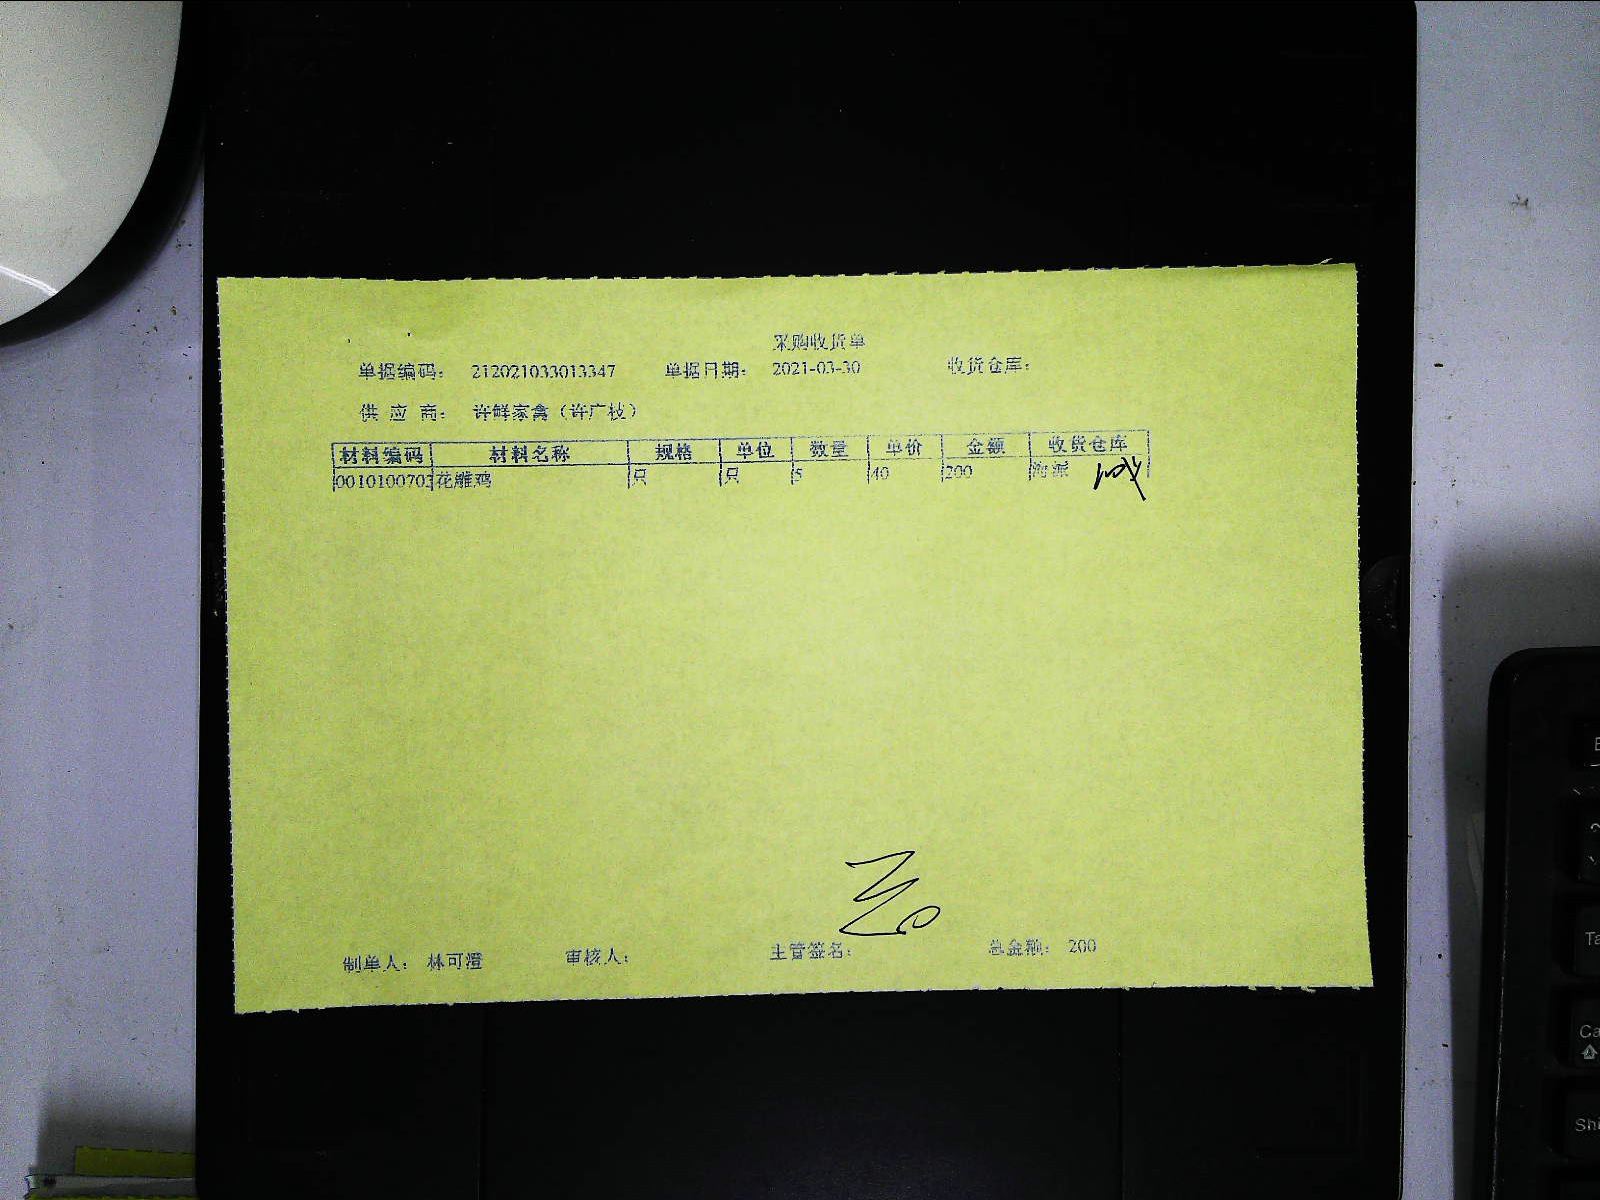 采购收货单
单据编码： 212021033013347 单据日期： 2021-03-30 收货仓库：
供 应 商： 许鲜家禽（许广枝）
材料编码 材料名称 规格 单位 数量 单价 金额 收货仓库
0010100703 花雕鸡 只 只 5 40 200 海派
制单人： 林可澄 审核人： 主管签名： 总金额： 200